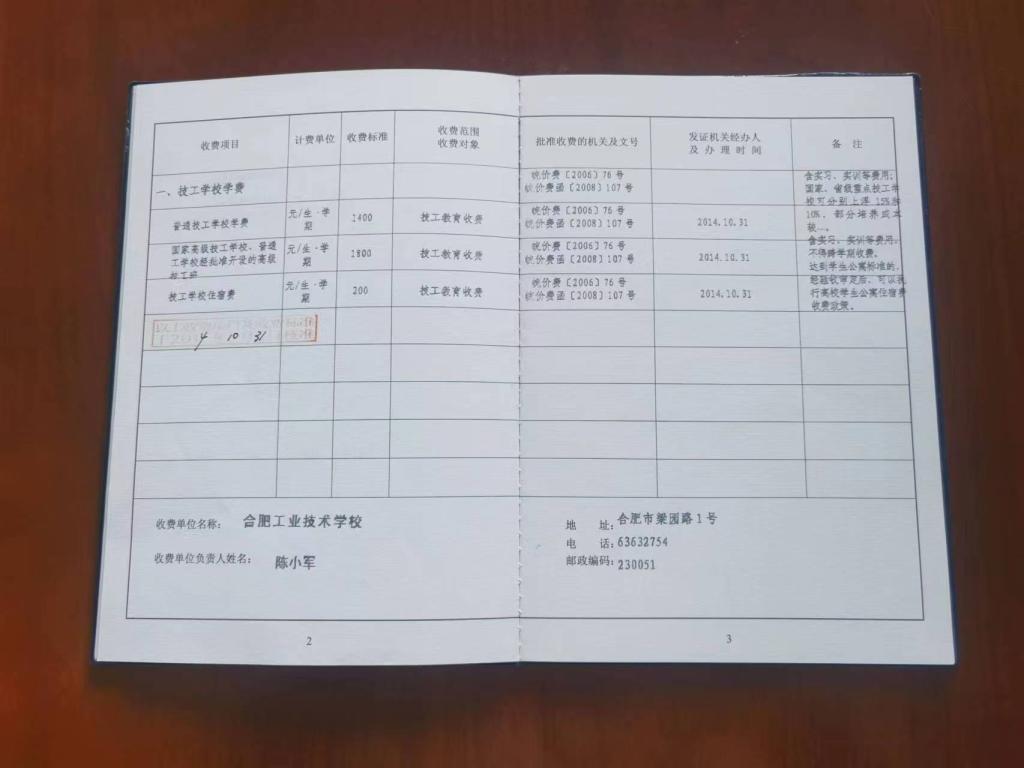 收费项目
计费单位
收费标准
收费范围
收费对象
批准收费的机关及文号
发证机关经办人
及 办 理 时 间
备 注
一、技工学校学费
皖价费〔2006〕76 号
皖价费函〔2008〕107 号
含实习、实训等费用;
国家、省级重点技工学
校可分别上浮 15%和
10%，部分培养成本
较…。
普通技工学校学费
元/生·学
期
1400
技工教育收费
皖价费〔2006〕76 号
皖价费函〔2008〕107 号
2014.10.31
国家高级技工学校、普通
工学校经批准开设的高级
技工班
元/生·学
期
1800
技工教育收费
皖价费〔2006〕76 号
皖价费函〔2008〕107 号
2014.10.31
含实习、实训等费用。
不得跨学期收费。
技工学校住宿费
元/生·学
期
200
技工教育收费
皖价费〔2006〕76 号
皖价费函〔2008〕107 号
2014.10.31
达到学生公寓标准的，
经验收审定后，可以执
行高校学生公寓住宿费
收费政策。
4 10 31
收费单位名称： 合肥工业技术学校
收费单位负责人姓名： 陈小军
地 址: 合肥市梁园路 1 号
电 话: 63632754
邮政编码: 230051
2
3